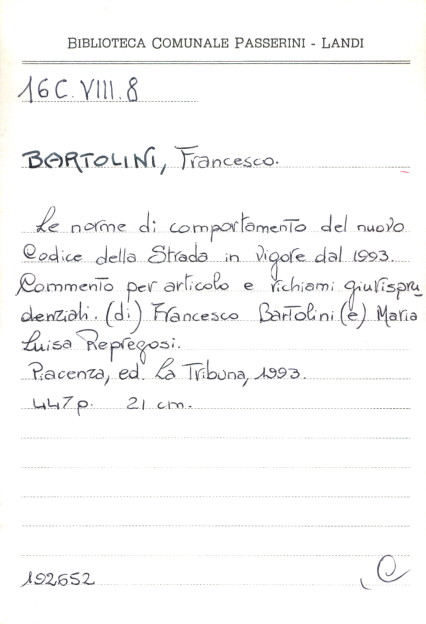 BIBLIOTECA COMUNALE PASSERINI - LANDI
16C.VIII.8
BARTOLINI, Francesco.
Le norme di comportamento del nuovo
Codice della Strada in vigore dal 1993.
Commento per articolo e richiami giurispru_
denziali. (di) Francesco Bartolini (e) Maria
Luisa Repregosi.
Piacenza, ed. La Tribuna, 1993.
447 p. 21 cm.
192652